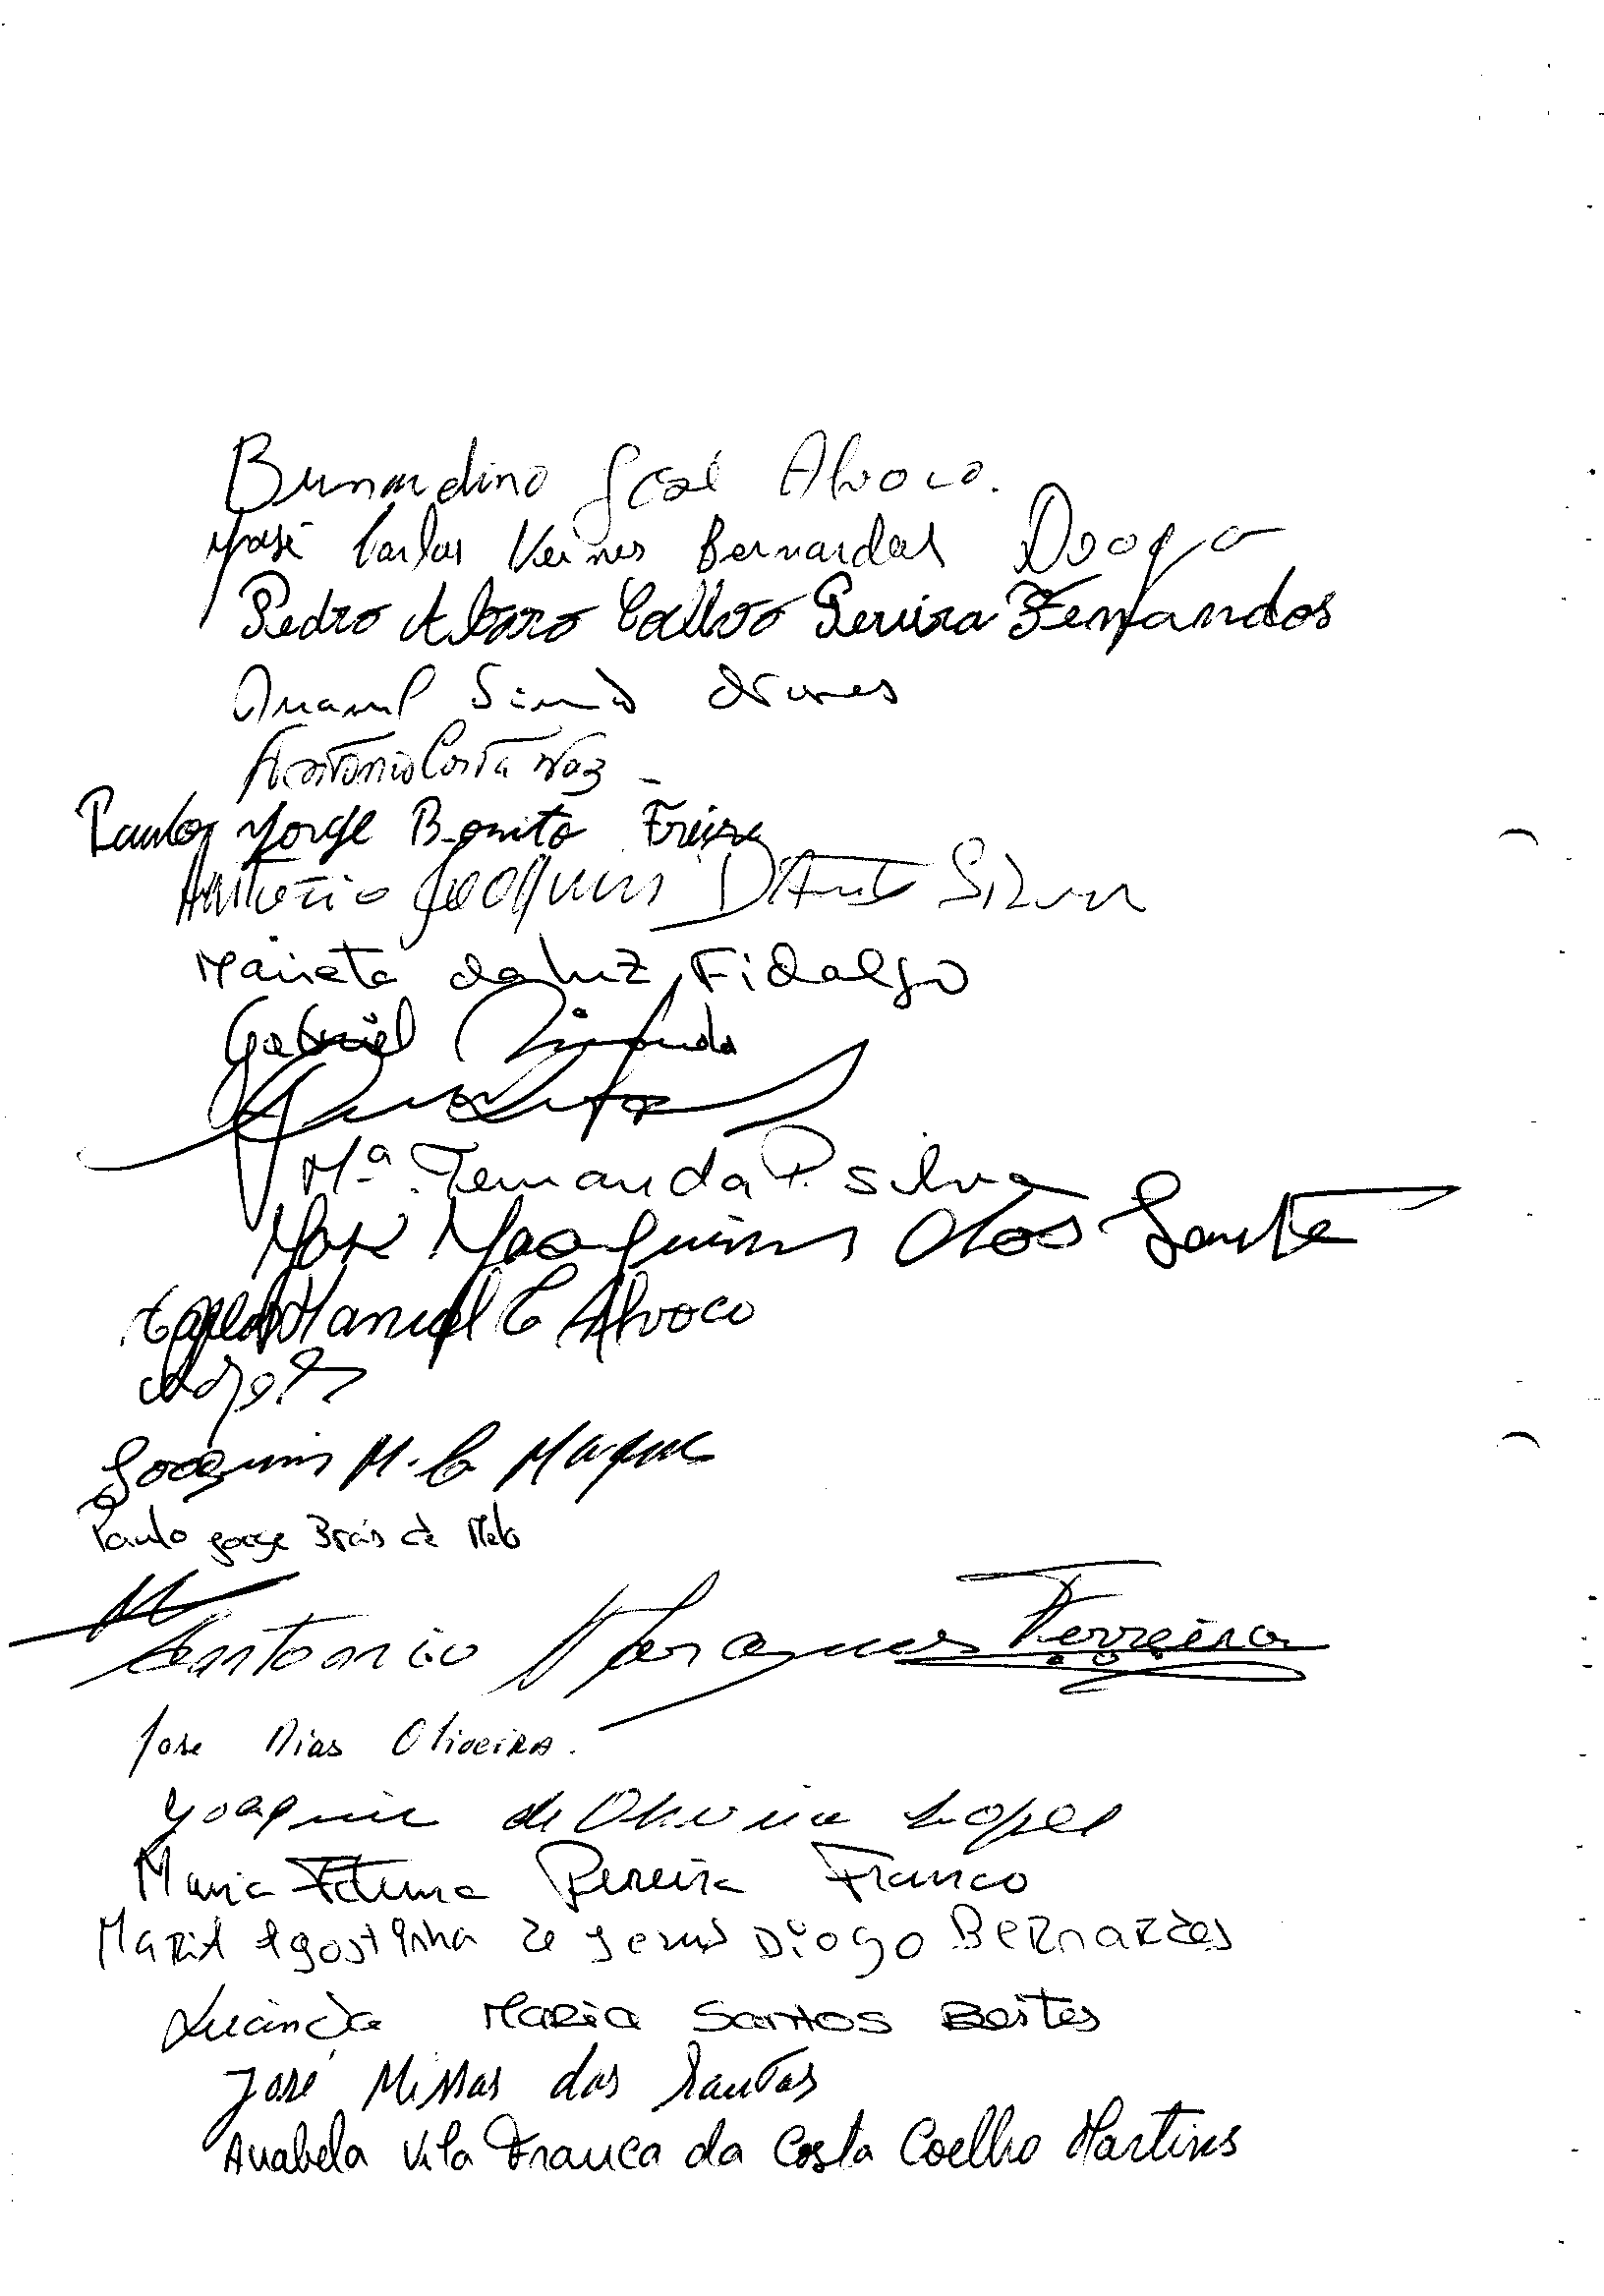 Bernardino José Alvoco.
José Carlos Neines Bernardas Diogo
Pedro Alvaro Calvo Pereira Fernandos
Manuel Simão Nunes
Antonio Costa Vaz
Paulo Jorge Bonito Freire
António Joaquim Duarte Silva
Marieta da Luz Fidalgo
Gabriel
Mª. Fernanda P. Silva
José Joaquim dos Santos
Manuel C Alvoco
Joaquim M. C.
Paulo Jorge Brás de Melo
Antonio Marques Ferreira
Jose Dias Oliveira.
Joaquim de Oliveira Lopes
Maria Fátima Pereira Franco
Maria Agostinha de Jesus Diogo Bernardes
Lucinda Maria Santos Beites
José Missas dos Santos
Anabela Vila Franca da Costa Coelho Martins